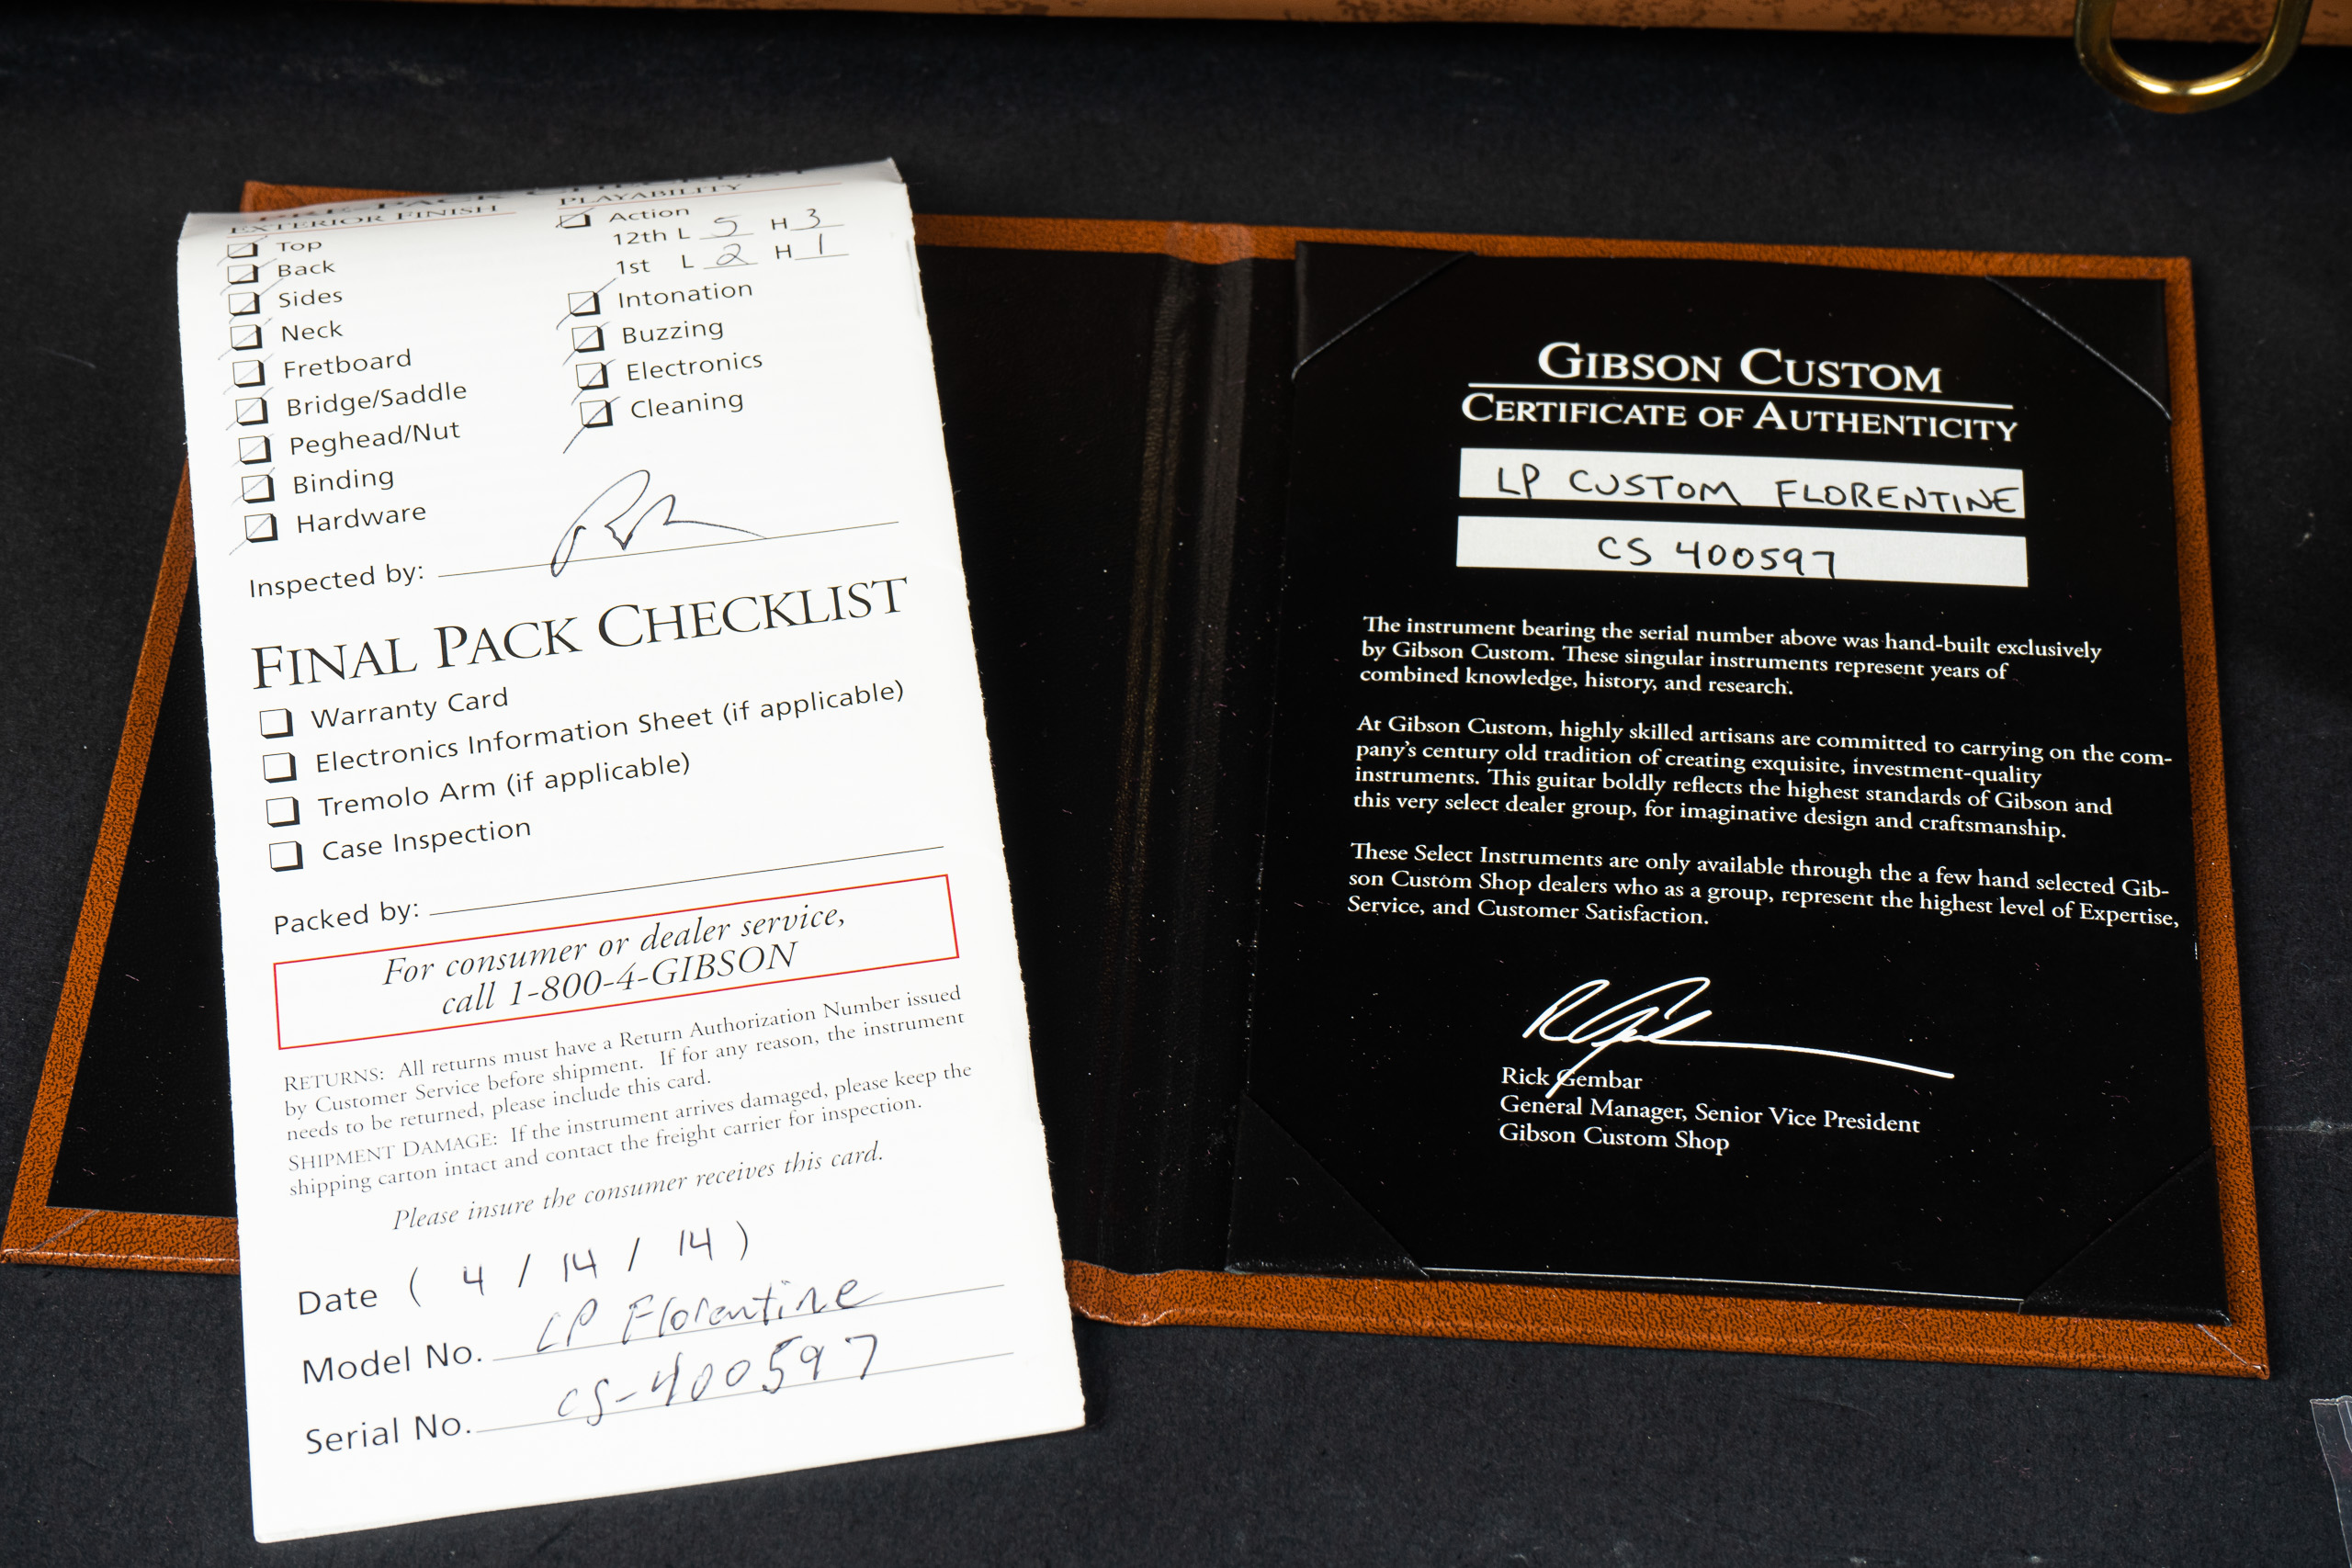 PRE-PACK CHECKLIST
EXTERIOR FINISH
Top
Back
Sides
Neck
Fretboard
Bridge/Saddle
Peghead/Nut
Binding
Hardware
PLAYABILITY
Action
12th L 5 H 3
1st L 2 H 1
Intonation
Buzzing
Electronics
Cleaning
Inspected by:
FINAL PACK CHECKLIST
Warranty Card
Electronics Information Sheet (if applicable)
Tremolo Arm (if applicable)
Case Inspection
Packed by:
For consumer or dealer service,
call 1-800-4-GIBSON
RETURNS: All returns must have a Return Authorization Number issued
by Customer Service before shipment. If for any reason, the instrument
needs to be returned, please include this card.
SHIPMENT DAMAGE: If the instrument arrives damaged, please keep the
shipping carton intact and contact the freight carrier for inspection.
Please insure the consumer receives this card.
Date ( 4 / 14 / 14 )
Model No. LP Florentine
Serial No. CS-400597
GIBSON CUSTOM
CERTIFICATE OF AUTHENTICITY
LP CUSTOM FLORENTINE
CS 400597
The instrument bearing the serial number above was hand-built exclusively
by Gibson Custom. These singular instruments represent years of
combined knowledge, history, and research.
At Gibson Custom, highly skilled artisans are committed to carrying on the com-
pany's century old tradition of creating exquisite, investment-quality
instruments. This guitar boldly reflects the highest standards of Gibson and
this very select dealer group, for imaginative design and craftsmanship.
These Select Instruments are only available through the a few hand selected Gib-
son Custom Shop dealers who as a group, represent the highest level of Expertise,
Service, and Customer Satisfaction.
Rick Gembar
General Manager, Senior Vice President
Gibson Custom Shop